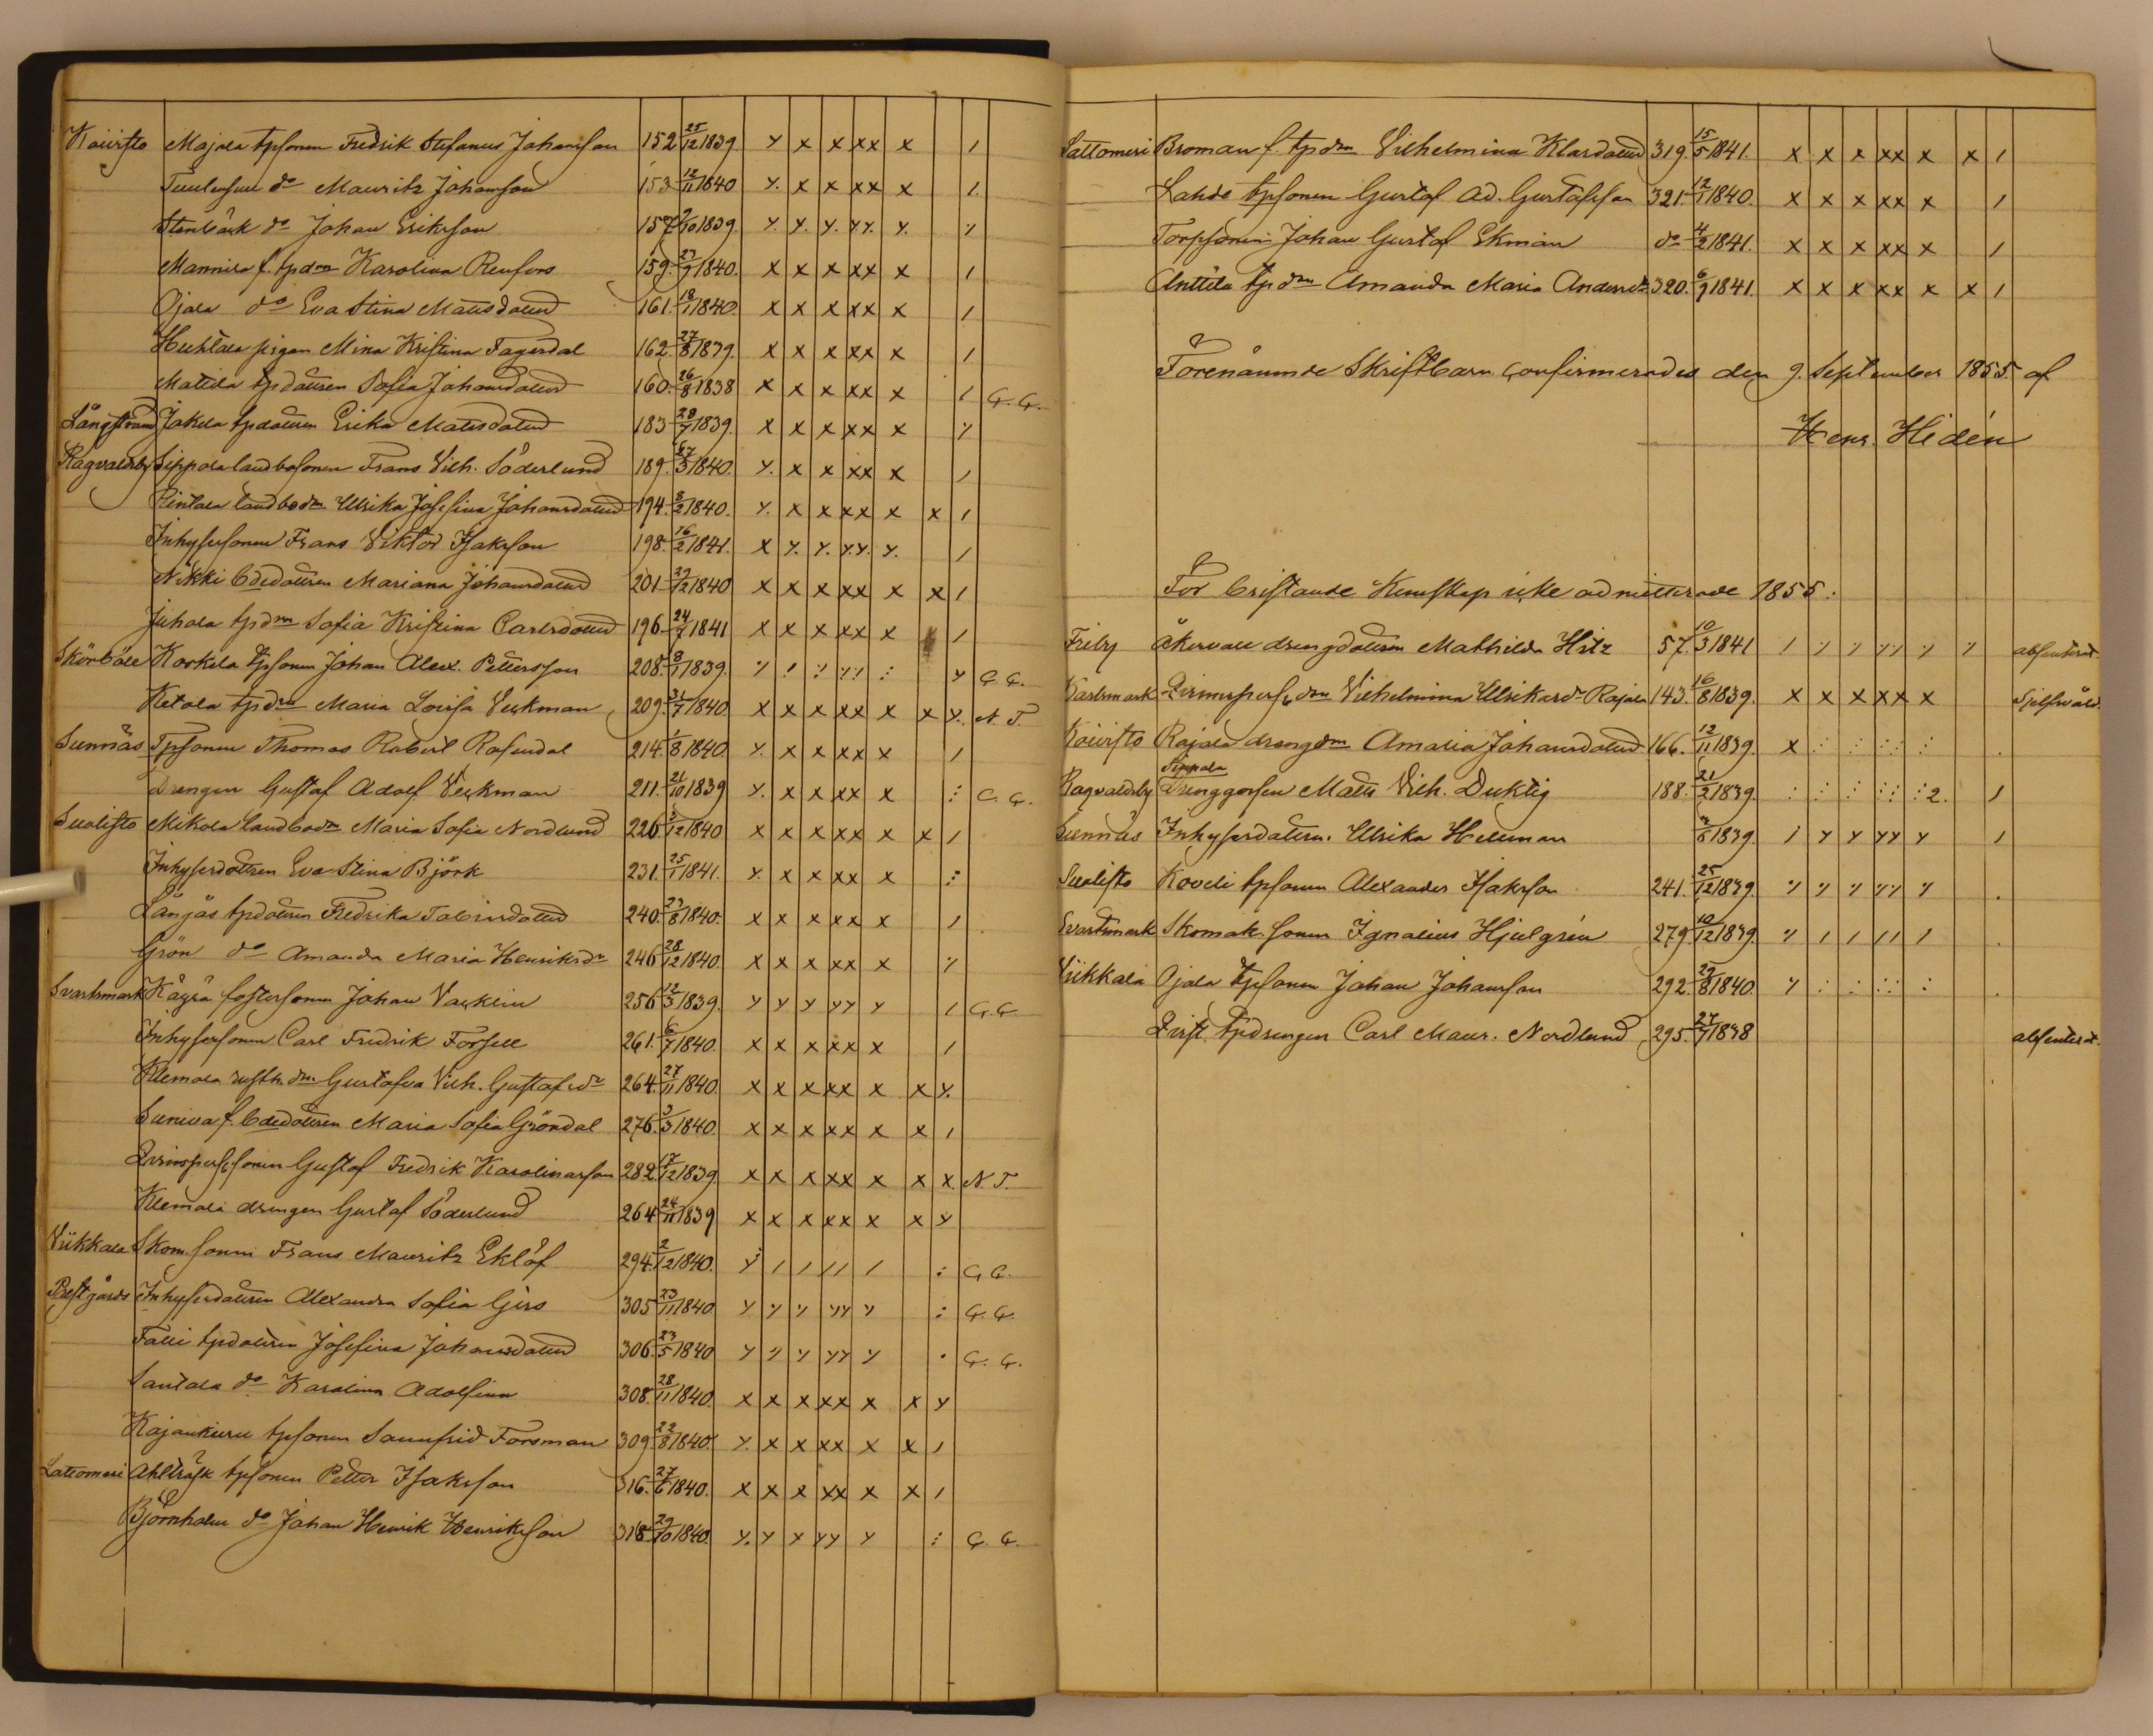 Koivisto Majala tpsonen Fredrik Stefanus Johansson 152 25/12 1839. y x x xx x /
Tuulensuu do Mauritz Johansson 153 12/11 1840 y. x x xx x /.
Stenbäck do Johan Eriksson 157 9/10 1839. y. y. y. yy. y. ٪
Mannila f. tpdrn Karolina Renfors 159. 27/9 1840. x x x xx x /
Ojala do Eva Stina Matsdotter 161. 18/1 1840. x x x xx x /
Huhtala pigan Mina Kristina Fagerdal 162. 27/8 1839. x x x xx x /
Matila tpdottren Sofia Johansdotter 160. 26/8 1838 x x x xx x / G. G.
Långstrand Jakola tpdottren Erika Matsdotter 183 28/7 1839. x x x xx x ٪
Ragvaldsby Sippola landbosonen Frans Vilh. Söderlund 189. 1840. y. x x xx x /
Pintala landbodrn Ulrika Josefina Johansdotter 194. 8/2 1840. y. x x xx x x /
Inhysessonen Frans Viktor Isaksson 198. 16/2 1841. x y. y. y.y. y. /
Nikki bdedottren Mariana Johansdotter 201. 29/12 1840 x x x xx x x /
Juhola tpdrn Sofia Kristina Carlsdotter 196. 24/7 1841 x x x xx x /
Skörböle Korkela tpsonen Johan Alex. Pettersson 208. 18/1 1839. y G. G.
Ketola tpdrn Maria Lovisa Veckman 209. 31/7 1840 x x x xx x x y. N. T.
Sunnäs Tpsonen Thomas Robert Rosendal 214. 1/8 1840. y. x x xx x /
Drengen Gustaf Adolf Veckman 211. 21/10 1839 y. x x xx x G. G.
Suolisto Mikola landbodrn Maria Sofia Nordlund 226. 5/12 1840 x x x xx x x /
Inhysesdottren Eva Stina Björk 231. 25/1 1841. y. x x xx x
Långås tpdottren Fredrika Tobiasdotter 240. 23/8 1840. x x x xx x /
Grön do Amanda Maria Henriksdr 246 28/12 1840. x x x xx x ٪
Svartsmark Kägrä fostersonen Johan Vacklin 256 12/3 1839. y y y yy y / G. G.
Inhysessonen Carl Fredrik Forsell 261. 6/7 1840. x x x xx x /
Klemola rusth. drn Gustafva Vilh. Gustafsdr 264. 27/11 1840. x x x xx x x y.
Suniva f. bdedottren Maria Sofia Gröndal 276. 3/3 1840. x x x xx x x /
Gustaf Fredrik Karolinasson 282 17/12 1839 x x x xx x x x. N. T.
Klemola drengen Gustaf Söderlund 264 24/11 1839 x x x xx x x y
Viikkala Skom. sonen Frans Mauritz Eklöf 294. 2/12 1840. / / // / : G. G.
Prestgårds Inhysesdottren Alexandra Sofia Girs 305 23/11 1840 : G. G.
Talli tpdottren Josefina Johansdotter 306. 23/5 1840 . G. G.
Santala do Karolina Adolfina 308. 28/11 1840. x x x xx x x y
Kajankieru tpsonen Samfrid Forsman 309. 22/8 1840. y. x x xx x x /
Lattomeri Ahlträsk tpsonen Petter Isaksson 316. 27/6 1840. x x x xx x x /
Björnholm do Johan Henrik Henriksson 318. 29/10 1840. y. y x yy y : G. G.
Lattomeri Broman f. tpdrn Vilhelmina Klasdotter 319. 15/5 1841. x x x xx x x /
Lahde tpsonen Gustaf Ad. Gustafsson 321. 12/1 1840. x x x xx x /
Torpsonen Johan Gustaf Ekman do 4/2 1841. x x x xx x /
Anttila tpdrn Amanda Maria Andersdr 320. 6/9 1841. x x x xx x x /
Förenämnde Skriftbarn confirmerades den 9. September 1855 af
Henr. Hedén
För bristande Kunskap icke admitterade 1855.
Friby Åkervall drengdottren Mathilda Hitz 57. 10/3 1841 absenterat.
Karlsmark drn Vilhelmina Ulrikasdr Rajala 143. 16/8 1839. x x x xx x Sjelfsvåld.
Koivisto Rajala drengdrn Amalia Johansdotter 166. 12/11 1839. x
Sippola
Ragvaldsby Drenggossen Matts Vilh. Duktig 188. 21/2 1839. 2. /
Sunnäs Inhysesdottren Ulrika Hellman 1839. y y yy y /
Suolisto Koveli tpsonen Alexander Isaksson 241. 25/12 1839.
Svartsmark Skomak. sonen Ignatius Hjulgrén 279. 10/12 1839. / / // /
Viikkala Ojala tpsonen Johan Johansson 292. 29/8 1840.
tpdrengen Carl Maur. Nordlund 295. 27/7 1838 absenterat.